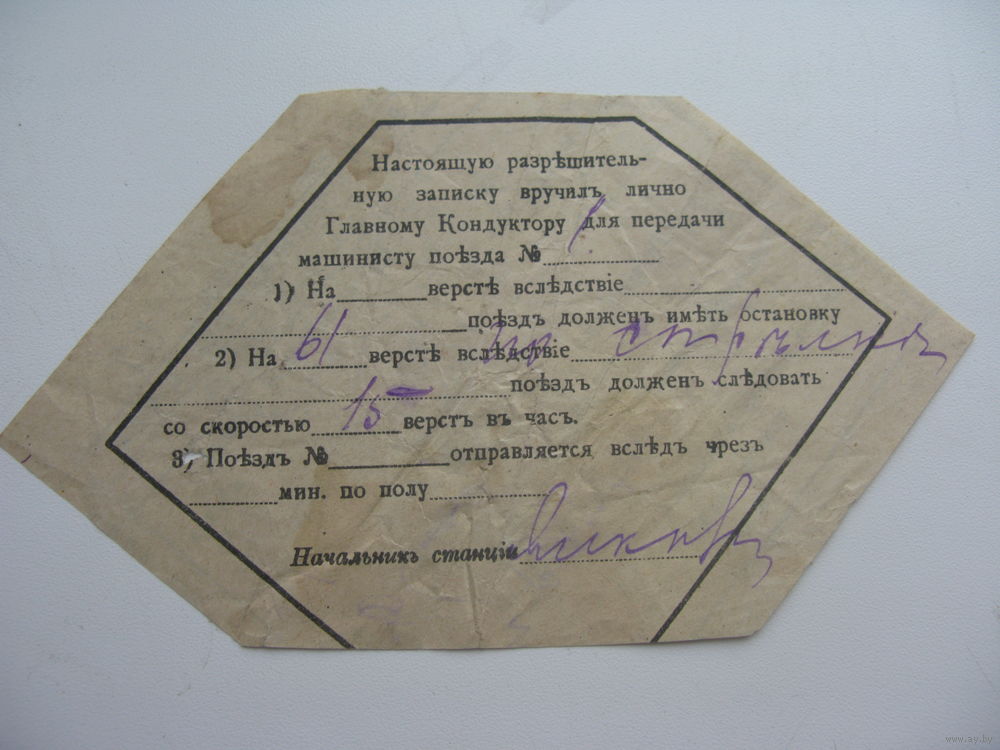 Настоящую разрѣшитель-
ную записку вручилъ лично
Главному Кондуктору для передачи
машинисту поѣзда № 1
1) На верстѣ вслѣдствіе
поѣздъ долженъ имѣть остановку
2) На 61 верстѣ вслѣдствіе
поѣздъ долженъ слѣдовать
со скоростью 15 верстъ въ часъ.
3) Поѣздъ № отправляется вслѣдъ чрезъ
мин. по полу
Начальникъ станціи
www.ay.by